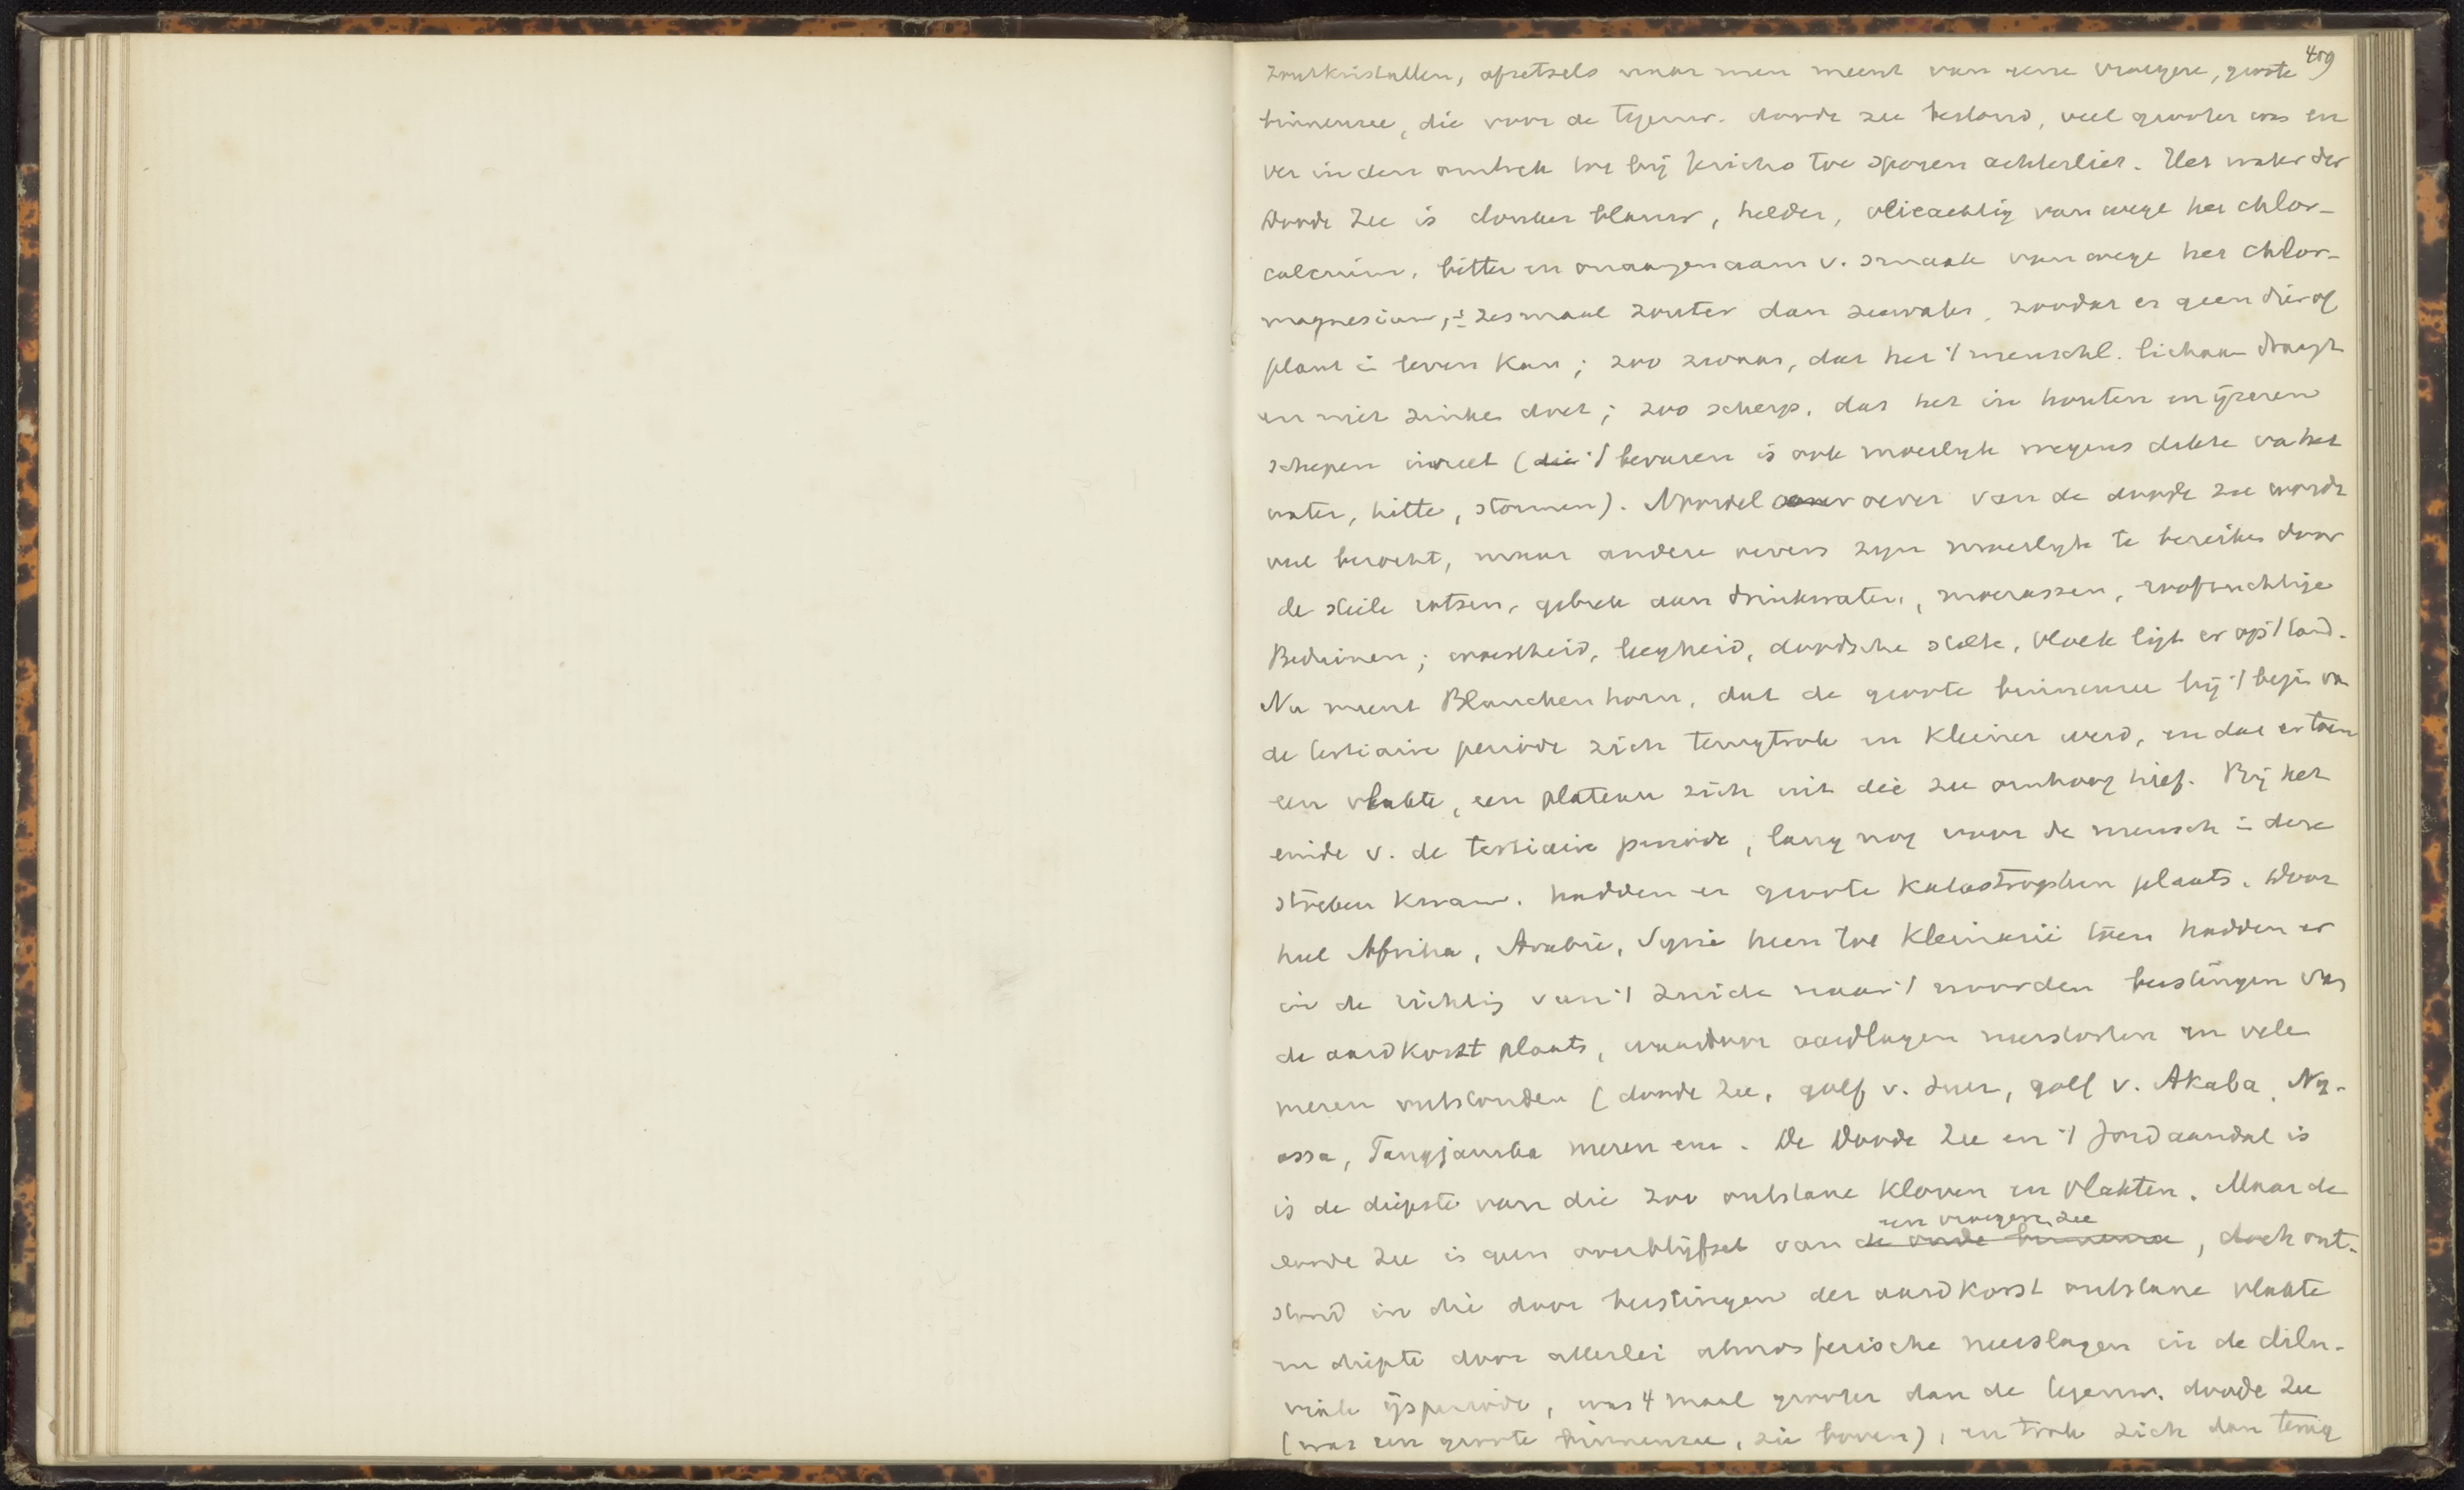 459
zoutkristallen, afzetsels naar men meent van eene vroegere, groote
binnenzee, die voor de tegenw. doode zee bestond, veel grooter was en
ver in den omtrek tot bij Jericho toe sporen achterliet. Het water der
Doode Zee is donker blauw, helder, olieachtig vanwege het chlor-
calcium, bitter en onaangenaam v. smaak vanwege het chlor-
magnesium, ± zesmaal zouter dan zeewater, zoodat er geen dier of
plant in leven kan; zoo zwaar, dat het 't menschl. lichaam draagt
en niet zinken doet; zoo scherp, dat het in houten en ijzeren
schepen invreet (die 't bevaren is ook moeilijk wegens dikte va het
water, hitte, stormen). Noordel oever van de doode zee wordt
veel bezocht, maar andere oevers zijn moeilijk te bereiken door
de steile rotsen, gebrek aan drinkwater, moerassen, roofzuchtige
Beduinen; woestheid, leegheid, doodsche stilte, vloek ligt er op 't land.
Nu meent Blanckenhorn, dat de groote binnenzee bij 't begin va
de tertiaire periode zich terugtrok en kleiner werd, en dat er toen
een vlakte, een plateau zich uit die zee omhoog hief. Bij het
einde v. de tertiaire periode, lang nog voor de mensch in deze
streken kwam, hadden er groote katastrophen plaats. Door
heel Afrika, Arabië, Syrië heen tot Kleinazië toen hadden er
in de richting van 't zuiden naar 't noorden berstingen van
de aardkorst plaats, waardoor aardlagen neerstortten en vele
meren ontstonden (doode zee, golf v. Suez, golf v. Akaba, Ny-
assa, Tangjanika meren enz. De Doode Zee en 't Jordaandal is
is de diepste van die zoo ontstane kloven en vlakten. Maar de
een vroegere zee
doode Zee is geen overblijfsel van de oude binnenzee, doch ont-
stond in die door berstingen der aardkorst ontstane vlakte
en diepte door allerlei atmosferische neerslagen in de dilu-
viale ijsperiode, was 4 maal grooter dan de tegenw. doode Zee
(was een groote binnenzee, zie boven), en trok zich dan terug